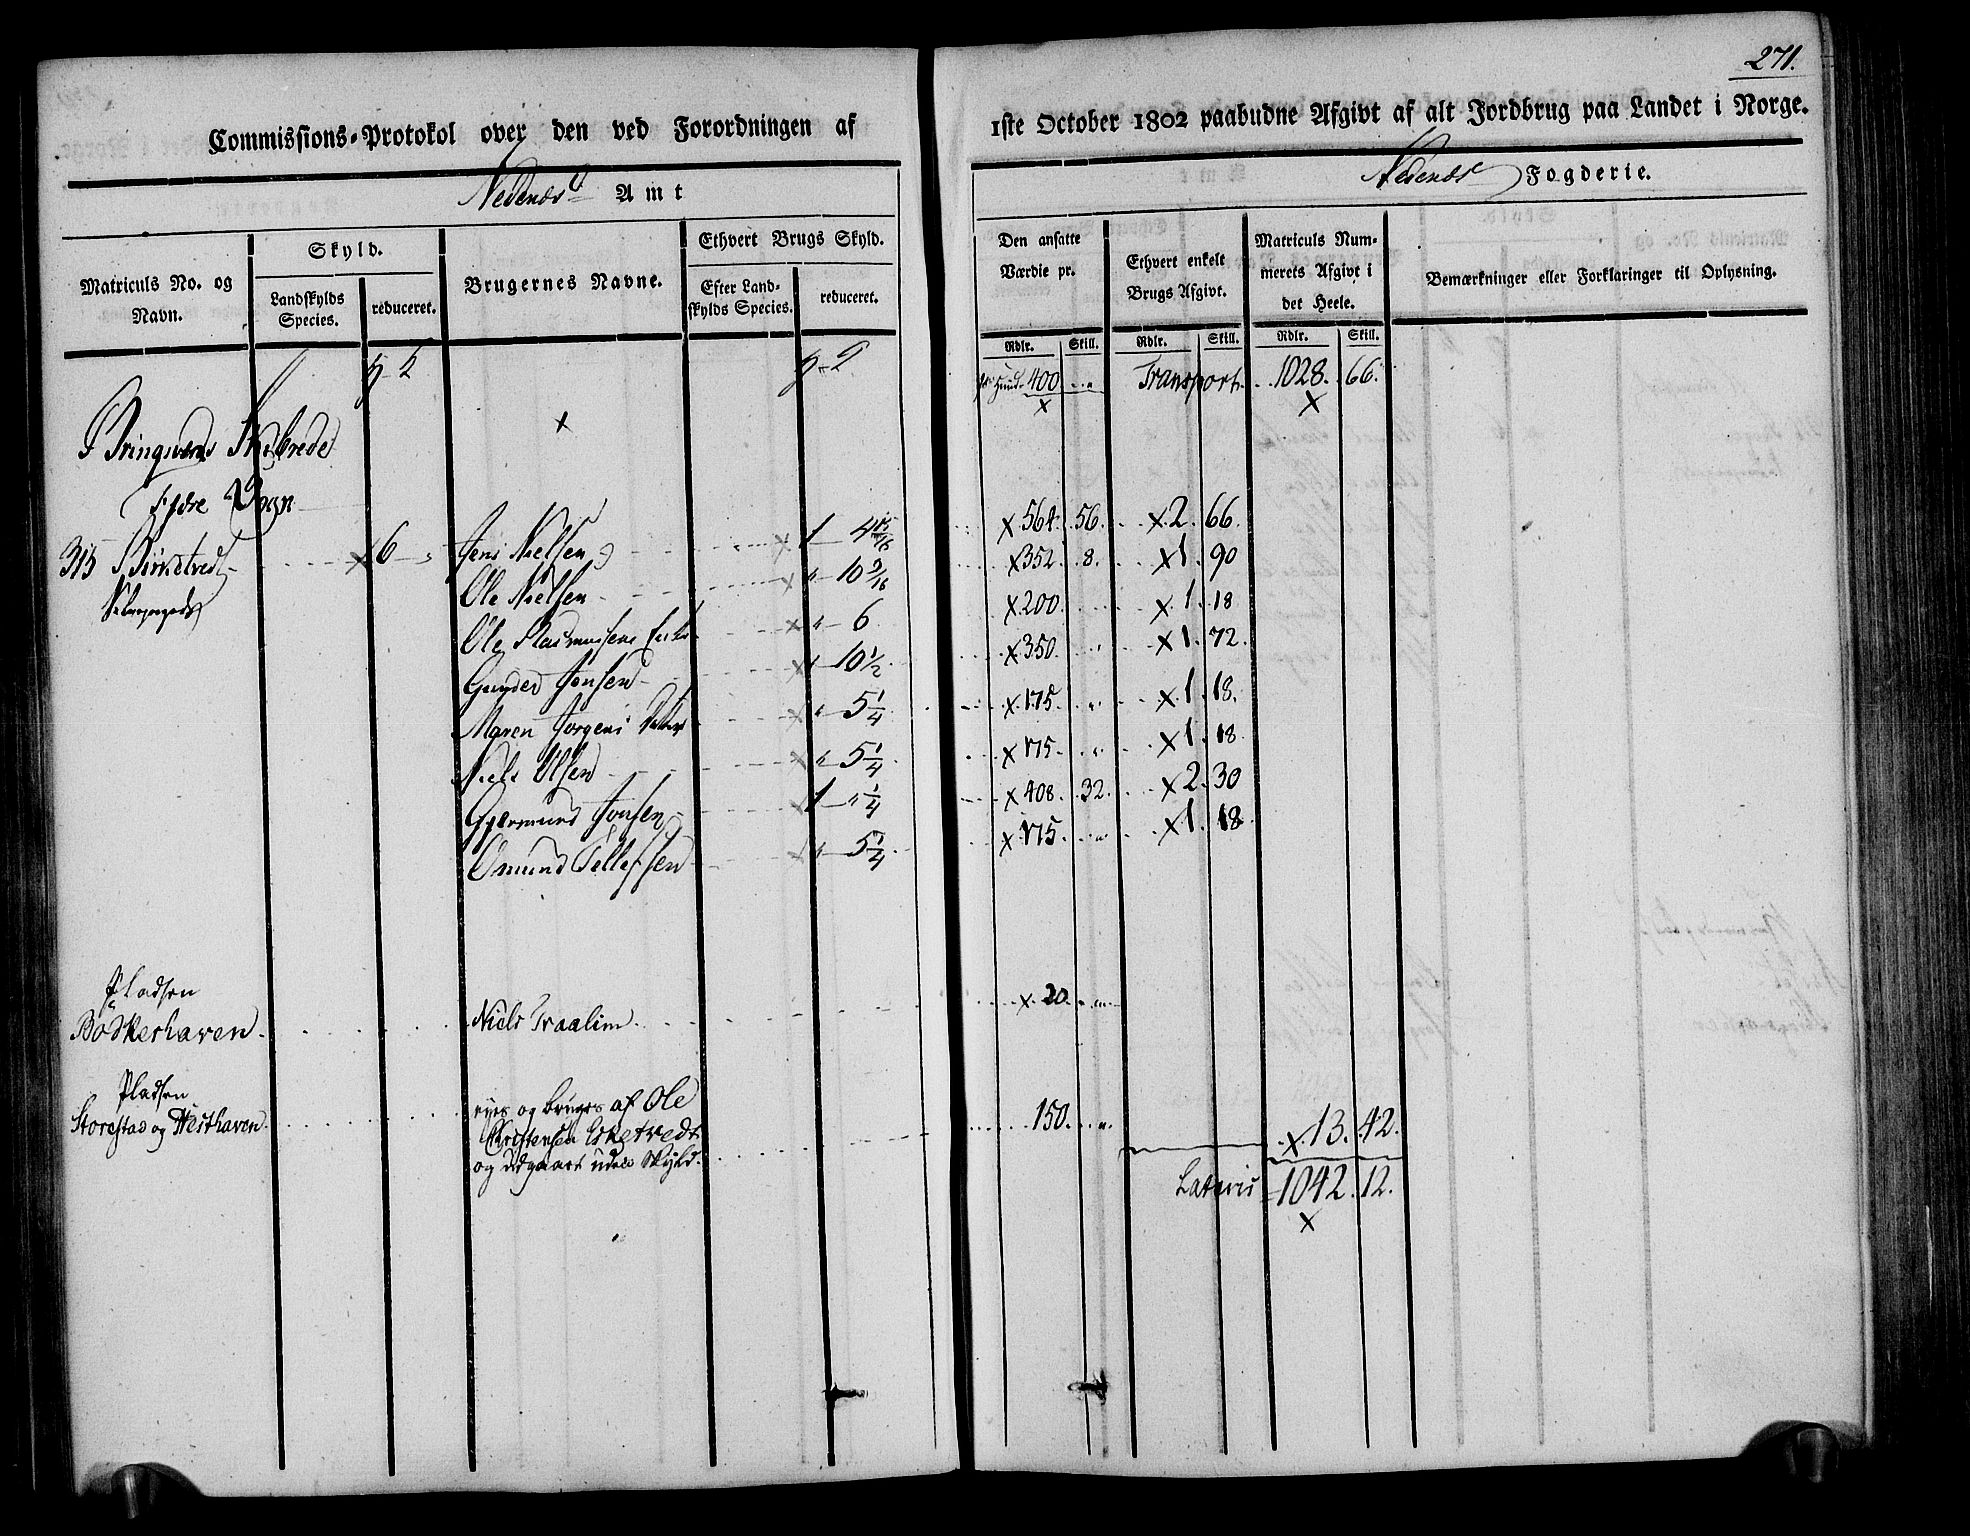 271.
Commissions-Protokol over den ved Forordningen af 1ste October 1802 paabudne Afgivt af alt Jordbrug paa Landet i Norge.
Nedenæs Amt
Nedenæs Fogderie.
Matriculs No. og Navn.
Skyld.
Landskylds Species.
reduceret.
Brugernes Navne.
Ethvert Brugs Skyld.
Efter Landskylds Species.
reduceret.
Den ansatte Værdie pr.
Rdlr. Skill.
Ethvert enkelt Brugs Afgivt.
Rdlr. Skill.
Matriculs Nummerets Afgivt i det Heele.
Rdlr. Skill.
Bemærkninger eller Forklaringer til Oplysning.
pr. Huud 400 Transport 1028. 66.
Øyestad Sogn
Jens Nielsen 1 4 15/16 564. 56. 2. 66.
Ole Nielsen 10 9/16 352. 8. 1. 90
Ole Rasmussens Enke 6 200. 1. 18
Gunder Jonsen 10 1/2 350. 1. 72.
Maren Jørgens Datter 5 1/4 175. 1. 18.
Niels Olsen 5 1/4 175. 1. 18.
Gjermund Jonsen 1 1/4 408. 32. 2. 30
Omund Tellefsen 5 1/4 175. 1. 18
Pladsen
Bodkerhaven. Niels Traalim. 20.
Pladsen
Storestad og Hesthaven. eyes og bruges af Ole
Christensen Esketvedt 150. 13. 42.
og udgaaer uden Skyld.
Lateris 1042. 12.